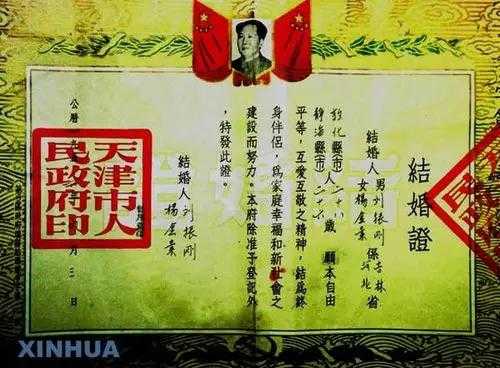 結婚證
結婚人 男 刘振刚 係 吉林 省
女 楊金業 河北
敦化 縣(市)人 二十八 歲 願本自由
靜海 縣(市) 二十六
平等,互愛互敬之精神,結爲終
身伴侶,爲家庭幸福和新社會之
建設而努力。本府除准予登記外
,特發此證。
結婚人 刘振刚
楊金業
天津市人
民政府印
公曆
月三日
XINHUA